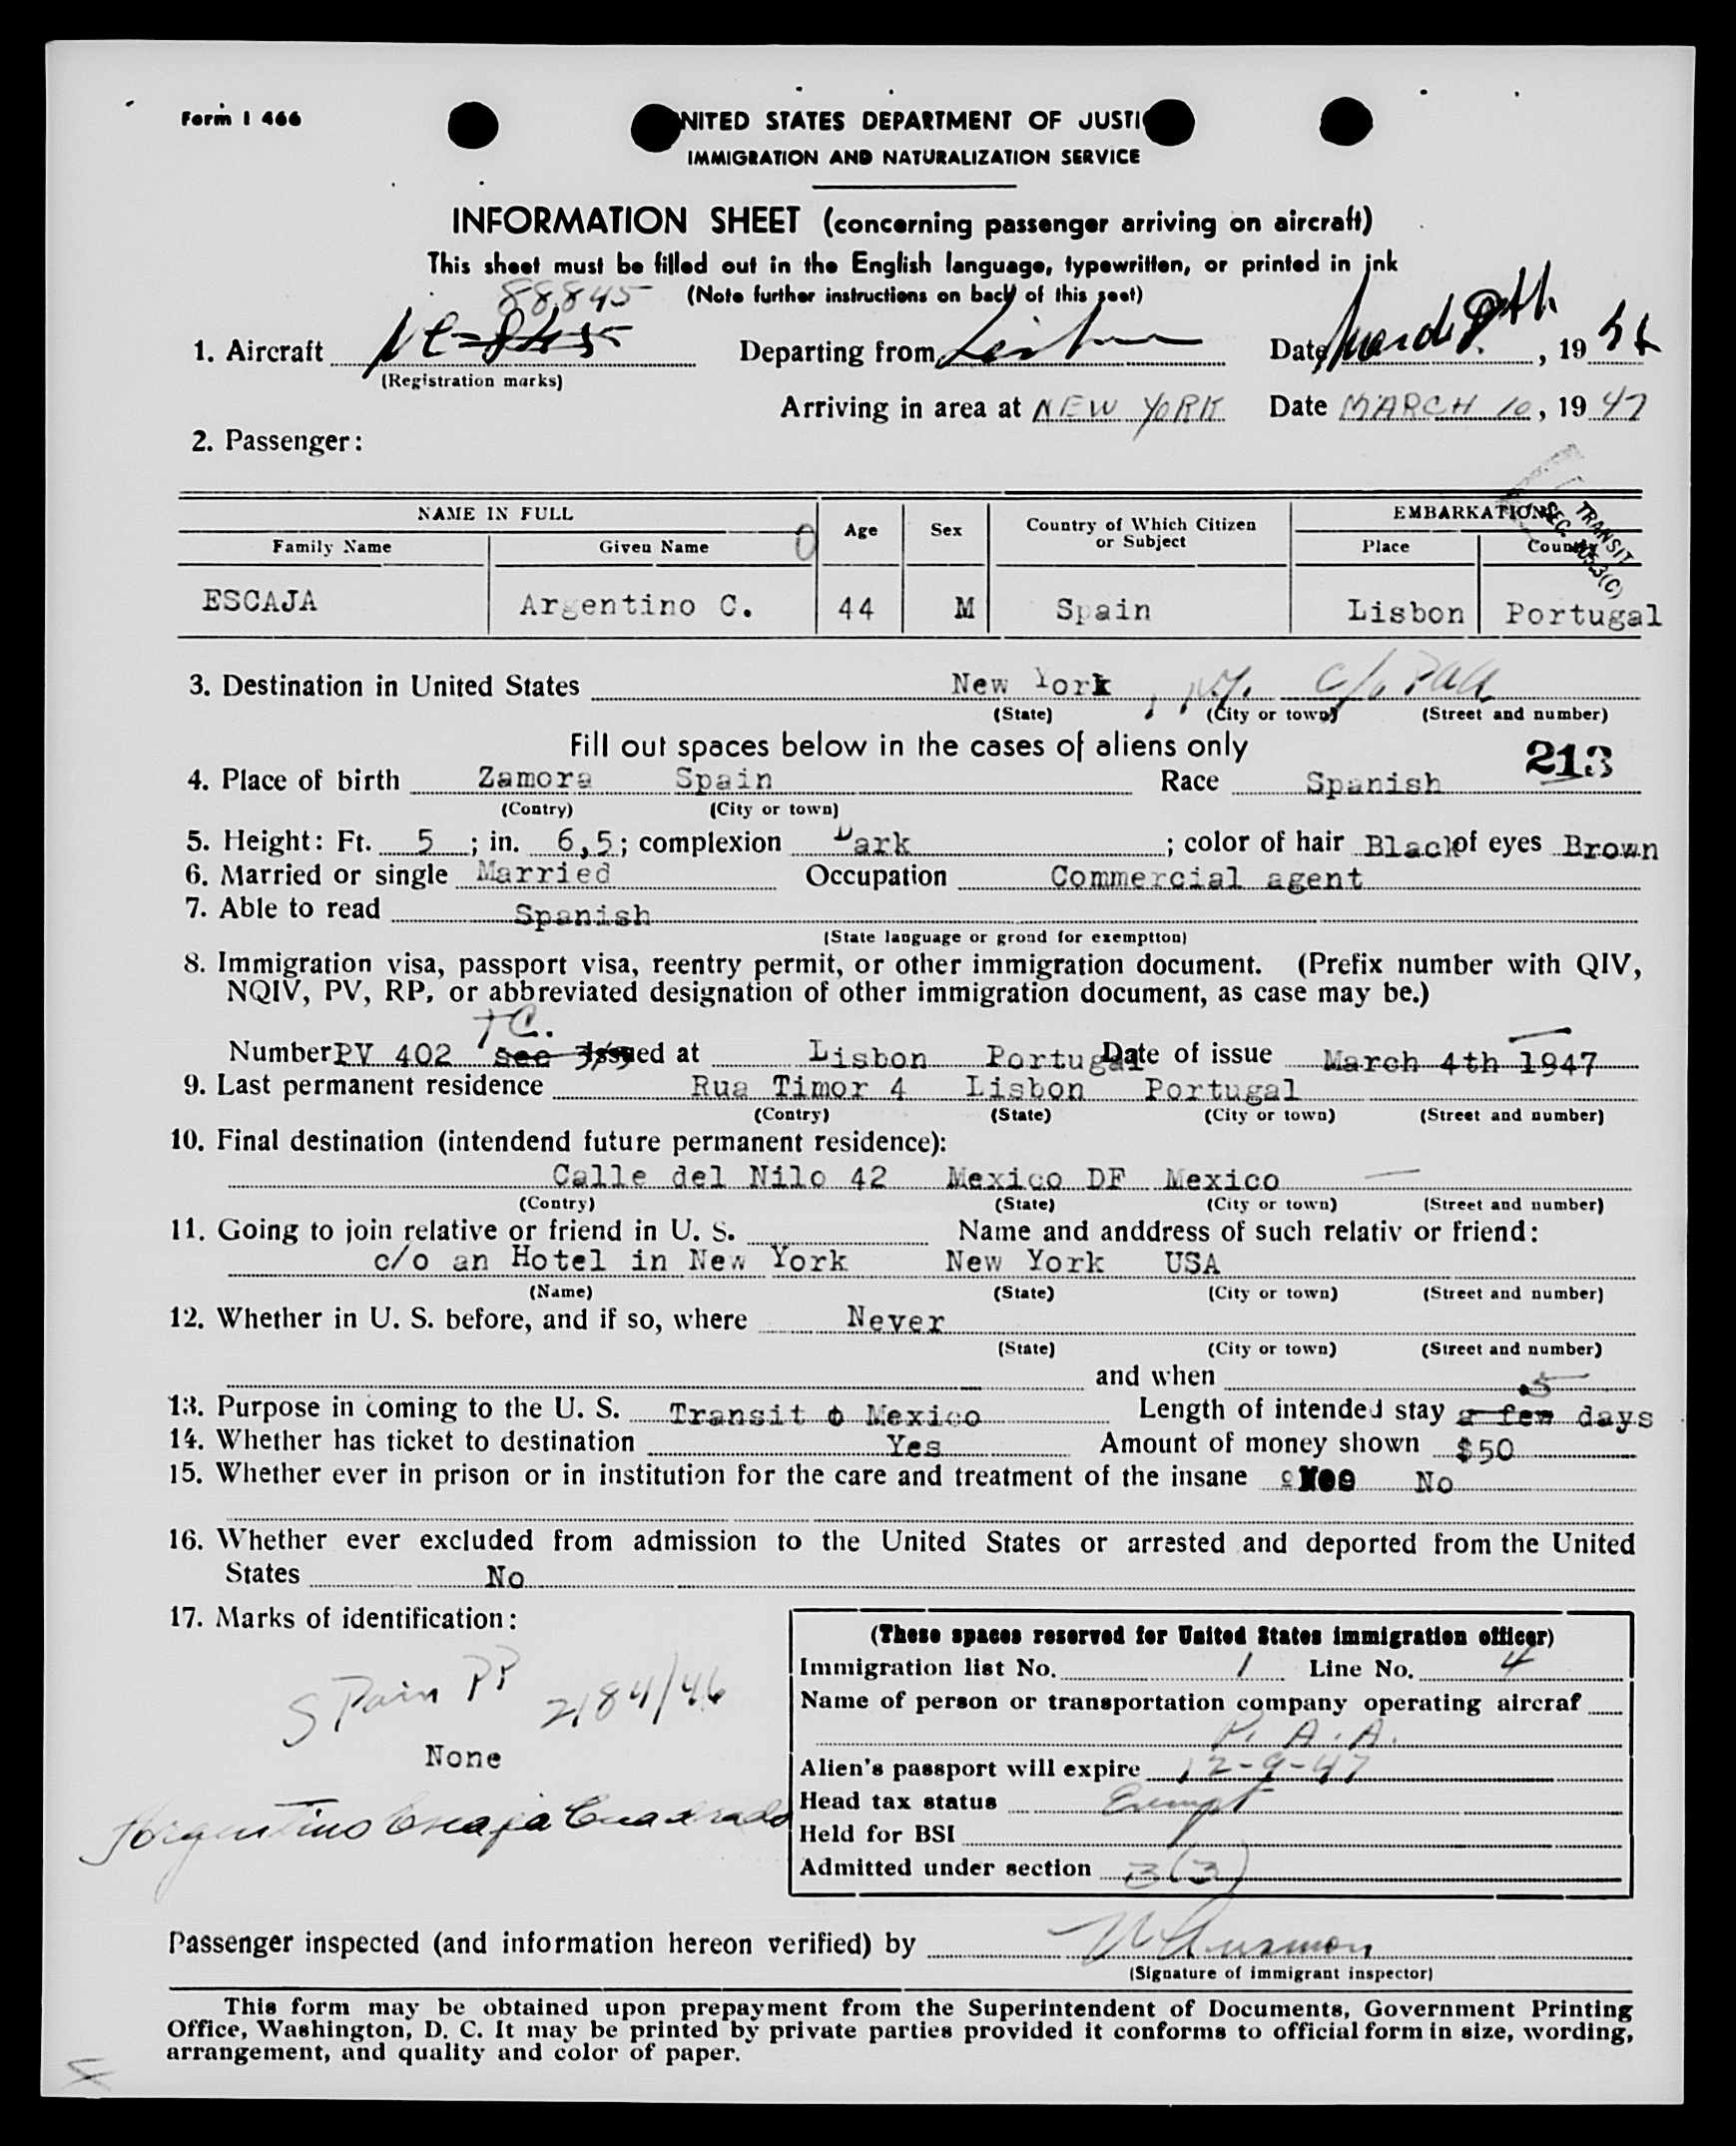 Form I 466
UNITED STATES DEPARTMENT OF JUSTI
IMMIGRATION AND NATURALIZATION SERVICE
INFORMATION SHEET (concerning passenger arriving on aircraft)
This sheet must be filled out in the English language, typewritten, or printed in ink
(Note further instructions on back of this seet)
88845
1. Aircraft Departing from Lisbon Date March 9th, 19
(Registration marks)
Arriving in area at NEW YORK Date MARCH 10, 19 47
2. Passenger:
TRANSIT
SEC. 3(C)
NAME IN FULL Age Sex Country of Which Citizen or Subject EMBARKATION
Family Name Given Name Place Country
ESCAJA Argentino C. 44 M Spain Lisbon Portugal
3. Destination in United States New York, N.Y. c/o PAA
(State) (City or town) (Street and number)
Fill out spaces below in the cases of aliens only
213
4. Place of birth Zamora Spain Race Spanish
(Contry) (City or town)
5. Height: Ft. 5; in. 6,5; complexion Dark; color of hair Black of eyes Brown
6. Married or single Married Occupation Commercial agent
7. Able to read Spanish
(State language or groud for exemptton)
8. Immigration visa, passport visa, reentry permit, or other immigration document. (Prefix number with QIV,
NQIV, PV, RP, or abbreviated designation of other immigration document, as case may be.)
TC.
Number PV 402 sec 3/3 Issued at Lisbon Portugal Date of issue March 4th 1947
9. Last permanent residence Rua Timor 4 Lisbon Portugal
(Contry) (State) (City or town) (Street and number)
10. Final destination (intendend future permanent residence):
Calle del Nilo 42 Mexico DF Mexico
(Contry) (State) (City or town) (Street and number)
11. Going to join relative or friend in U. S. Name and anddress of such relativ or friend:
c/o an Hotel in New York New York USA
(Name) (State) (City or town) (Street and number)
12. Whether in U. S. before, and if so, where Never
(State) (City or town) (Street and number)
and when
5
13. Purpose in coming to the U. S. Transit to Mexico Length of intended stay a few days
14. Whether has ticket to destination Yes Amount of money shown $50
15. Whether ever in prison or in institution for the care and treatment of the insane No
16. Whether ever excluded from admission to the United States or arrested and deported from the United
States No
17. Marks of identification:
Spain PP 2184/46
None
Argentino Escaja Cuadrado
(These spaces reserved for United States immigration officer)
Immigration list No. 1 Line No. 4
Name of person or transportation company operating aircraf
P. A. A.
Alien's passport will expire 12-9-47
Head tax status Exempt
Held for BSI
Admitted under section 3(3)
Passenger inspected (and information hereon verified) by
(Signature of immigrant inspector)
This form may be obtained upon prepayment from the Superintendent of Documents, Government Printing
Office, Washington, D. C. It may be printed by private parties provided it conforms to official form in size, wording,
arrangement, and quality and color of paper.